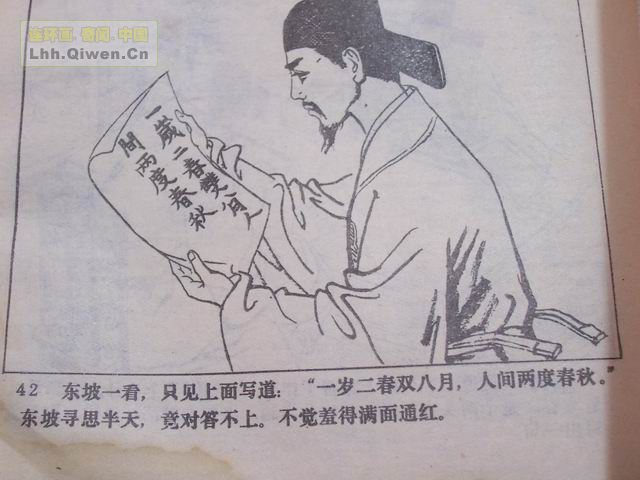 连环画.奇闻.中国
Lhh.Qiwen.Cn
一歲二春雙八月人
間兩度春秋
42 东坡一看，只见上面写道：“一岁二春双八月，人间两度春秋。”
东坡寻思半天，竟对答不上。不觉羞得满面通红。